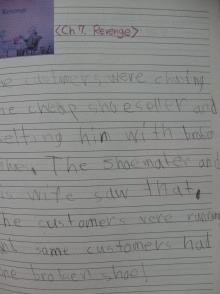 Revenge
<Ch 7. Revenge>
customers were chasing
cheap shoeseller and
him with broken
The shoemaker and
wife saw that.
customers were running
some customers had
broken shoe!